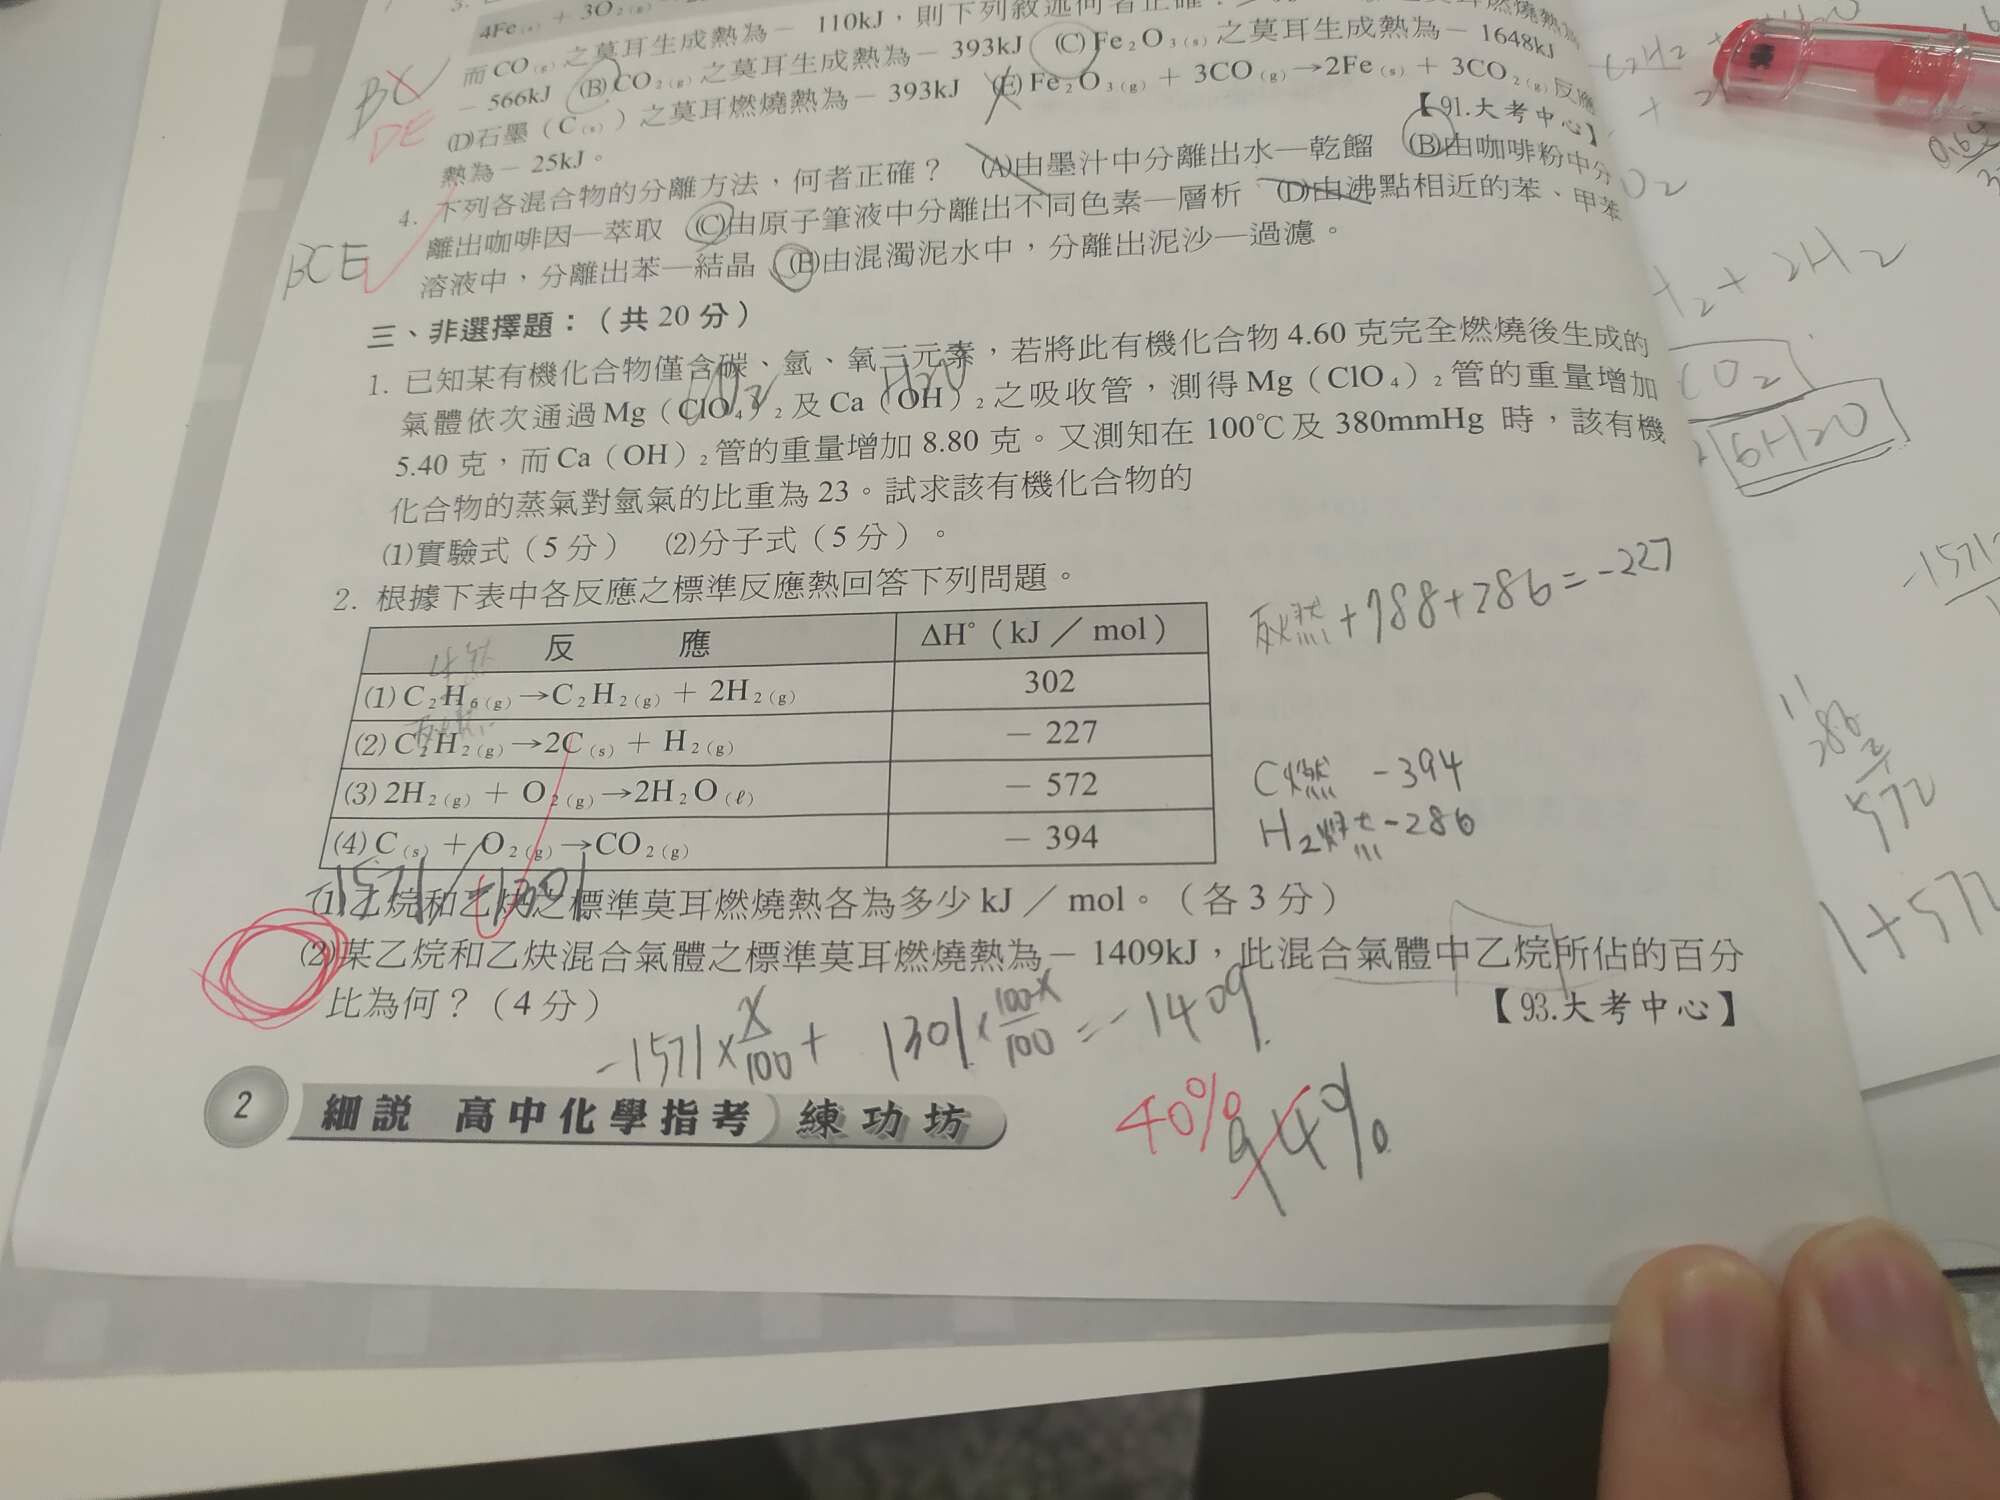 4Fe(s) + 3O2(g)
而CO(g)之莫耳生成熱為－110kJ，則下列敘述何者正確
－566kJ (B)CO2(g)之莫耳生成熱為－393kJ (C)Fe2O3(s)之莫耳生成熱為－1648kJ
(D)石墨（C(s)）之莫耳燃燒熱為－393kJ (E)Fe2O3(g) + 3CO(g)→2Fe(s) + 3CO2(g)反應
熱為－25kJ。
【91.大考中心】
DE
4. 下列各混合物的分離方法，何者正確？ (A)由墨汁中分離出水—乾餾 (B)由咖啡粉中分
離出咖啡因—萃取 (C)由原子筆液中分離出不同色素—層析 (D)由沸點相近的苯、甲苯
溶液中，分離出苯—結晶 (E)由混濁泥水中，分離出泥沙—過濾。
BCE
三、非選擇題：（共20分）
1. 已知某有機化合物僅含碳、氫、氧三元素，若將此有機化合物4.60克完全燃燒後生成的
氣體依次通過Mg（ClO4）2及Ca（OH）2之吸收管，測得Mg（ClO4）2管的重量增加
5.40克，而Ca（OH）2管的重量增加8.80克。又測知在100℃及380mmHg時，該有機
化合物的蒸氣對氫氣的比重為23。試求該有機化合物的
(1)實驗式（5分） (2)分子式（5分）。
2. 根據下表中各反應之標準反應熱回答下列問題。
反 應 ΔH°（kJ／mol）
(1) C2H6(g)→C2H2(g) + 2H2(g) 302
(2) C2H2(g)→2C(s) + H2(g) －227
(3) 2H2(g) + O2(g)→2H2O(ℓ) －572
(4) C(s) + O2(g)→CO2(g) －394
反燃+788+286=-227
C燃 -394
H2燃 -286
-1571 -1301
(1)乙烷和乙炔之標準莫耳燃燒熱各為多少kJ／mol。（各3分）
(2)某乙烷和乙炔混合氣體之標準莫耳燃燒熱為－1409kJ，此混合氣體中乙烷所佔的百分
比為何？（4分）
【93.大考中心】
-1571×x/100 + 1301×100-x/100 = -1409
40%
94%
2 細說 高中化學指考 練功坊
CO2
6H2O
286
2
572
1+572